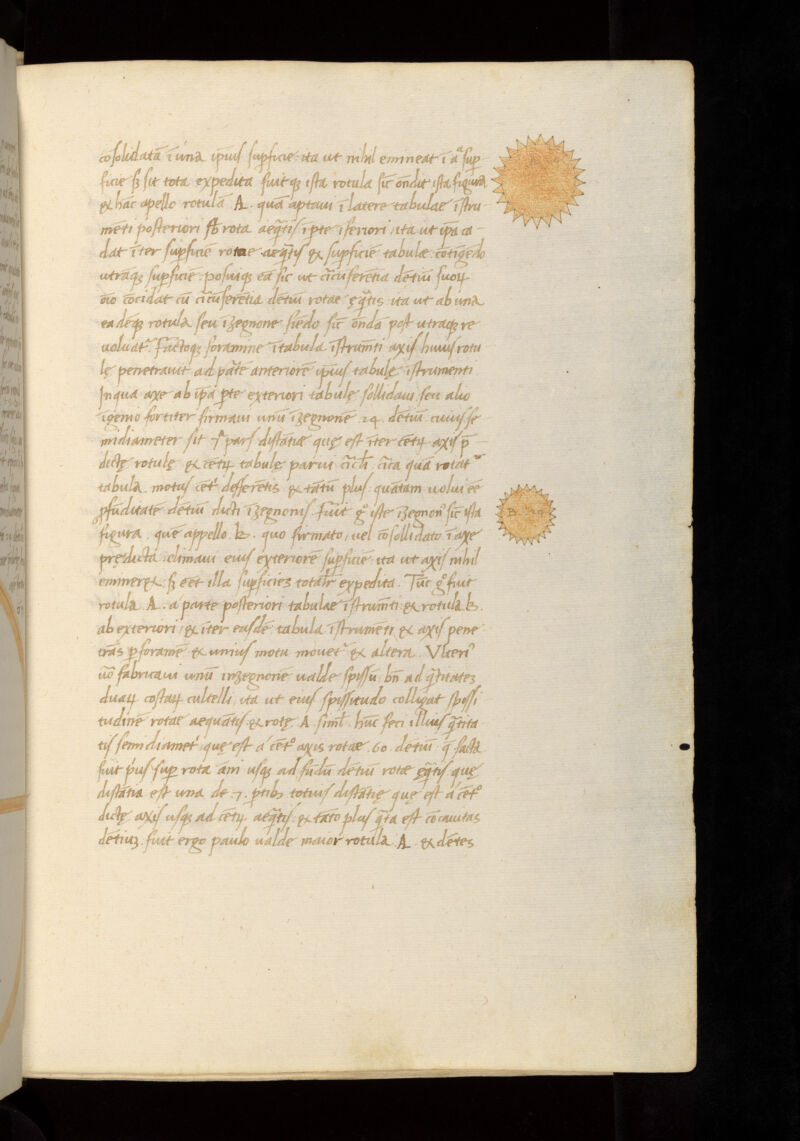 cōsolidatā ī una ipsius supficie ita ut nihil emineat ī aª sup
ficie sƺ sit tota expedita fuitqƺ ista rotula sic ōndit ista figura
& hāc apello rotulā A. quā aptavi ī latere tabulae īstru
mēti posteriori sƀ rota aeq̄tis ī pte īferiori ita ut ipā ca
dat īter supficiē rotae aeq̄tis & supficiē tabulae cōtigēdo
utrāqƺ supficiē. posuiqƺ eā sic ut circūferētia dētiū suoꝝ
cōcidat cū circūferētia dētiū rotae ęq̄tis ita ut ab una
eadēqƺ rotula seu īzegnone siēdo sic ōndā post utraqƺ re
volvatʳ. Factoqƺ foramine ī tabula īstrumēti axis huius rotu
lę penetravit ad partē anteriorē ipsius tabulę īstrumenti
In qua axe ab ipā pte exteriori tabulę sollidavi seu alio
īgenio fortiter firmavi unū īzegnonē 24 dētiū cuius se
midiameter sit 7ª pars distātiae quę est īter cētꝝ axis p̄
dictę rotulę & cētꝝ tabulę parvi circli circa quā rotatʳ
tabula motus cētⁱ defferētis & tātū plus quātam volui eē
pfūditatē dētiū dicti īzegnonis. Fuit gº iste īzegnonⁱ sic ista
figura quē appello b. quo firmato vel cōsollidato ī axe
prędicta elimavi eius exteriorē supficiē ita ut axis nihil
emineret sƺ eēt illa supficies totalʳ expedita. Tūc gº fuit
rotula A. a parte posteriori tabulae īstrumēti & rotula b.
ab exteriori & īter easdē tabula īstrumēti & axis pene
trās p foramē & unius motu movetʳ & altera. Ulteriⁱ
ūo fabricavi unū inzegnonē valde spissū bn̄ ad q̄titatē
duaꝝ costaꝝ cultelli ita ut eius spissitudo colligat spissi
tudinē rotae aequātis & rotę A. simˡ. huc feci illius q̄tita
tis semidiametⁱ quę est a cētº axis rotae 60 dētiū q̄ facta
fuit pⁱus sup rotā āni usqƺ ad fūdū dētiū rotae ęq̄tis quę
distātia est una de .7. ptibƺ totius distātię que est a cētº
dictę axis usqƺ ad cētꝝ aeq̄tis & tāto plus q̄ta est cōcavitas
dētiuƺ. fuit ergo paulo valde maior rotula A & dētes
B. 24